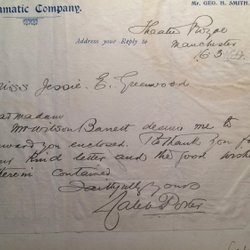 amatic Company.
Mr. GEO. H. SMITH.
Address your Reply to
Theatre Royal
Manchester
Miss Jessie E. Greenwood
Madam
Mr Wilson Barrett desires me to
ward you enclosed. To thank you for
your kind letter and the good wishes
therein contained
Faithfully yours
Caleb Porter